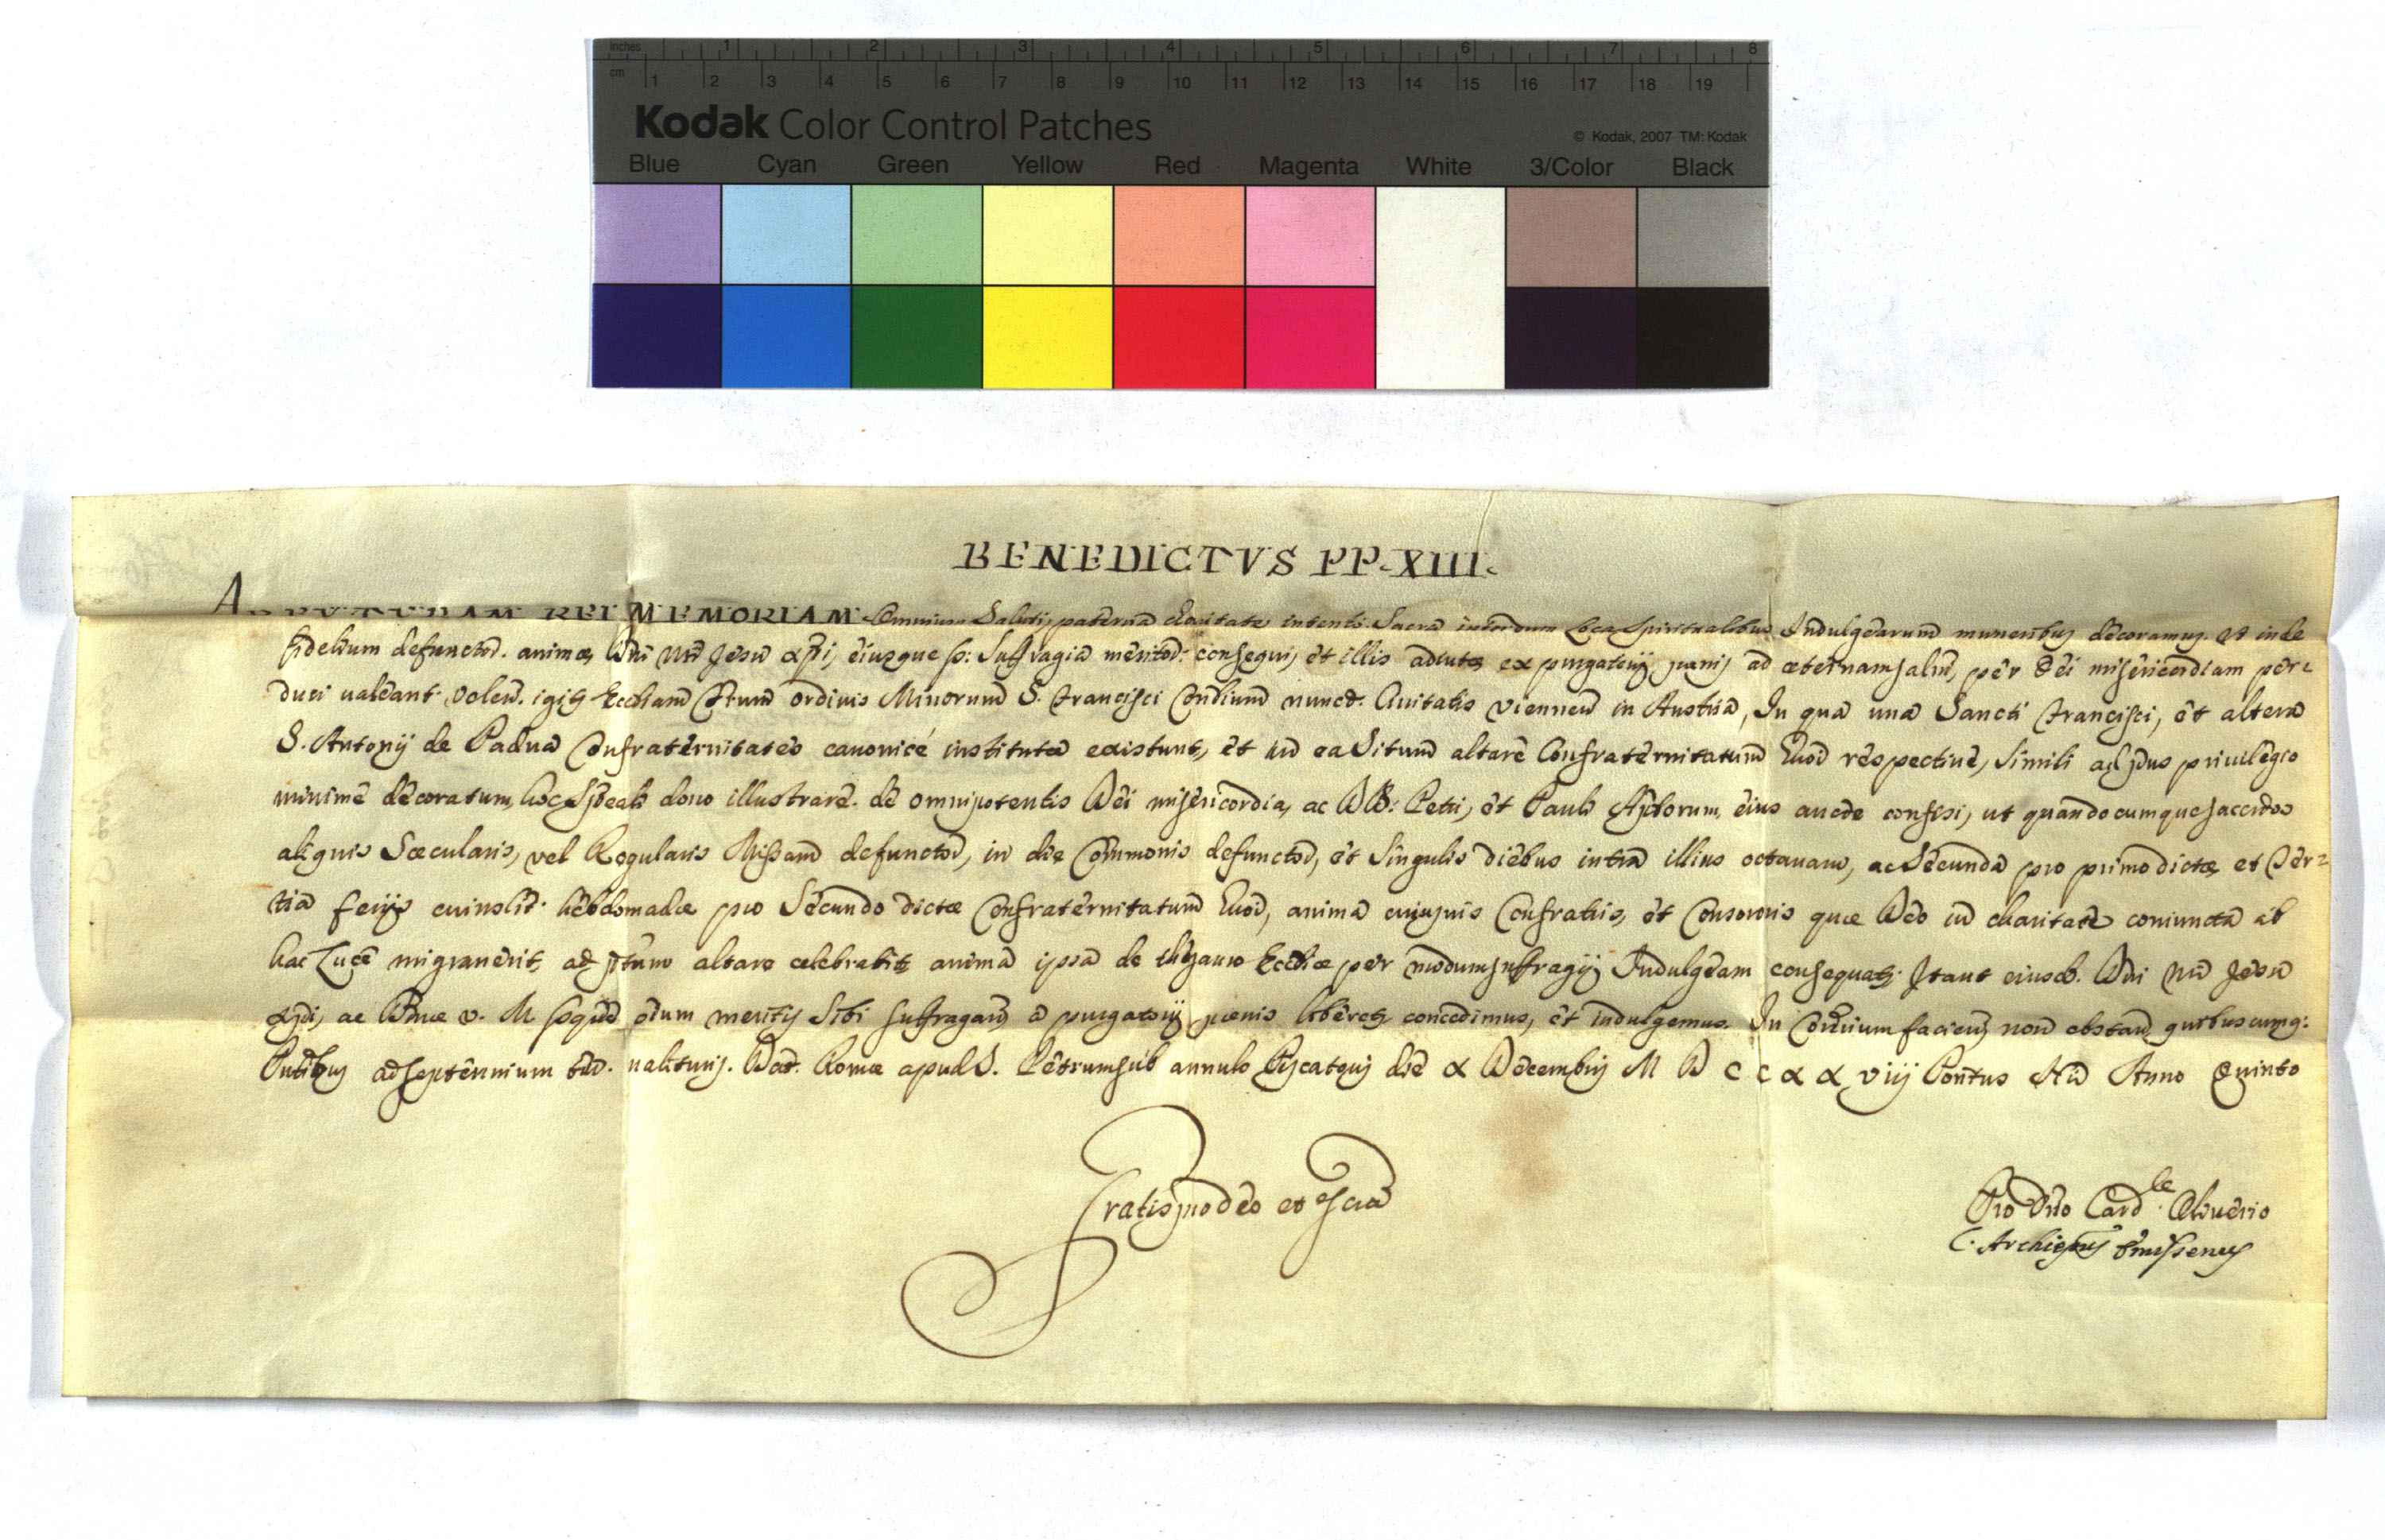 inches 1 2 3 4 5 6 7 8
cm 1 2 3 4 5 6 7 8 9 10 11 12 13 14 15 16 17 18 19
Kodak Color Control Patches © Kodak, 2007 TM: Kodak
Blue Cyan Green Yellow Red Magenta White 3/Color Black
BENEDICTVS PP. XIII.
AD PERPETUAM REI MEMORIAM Omnium Saluti paterna charitate intenti Sacra interdum Loca Spiritualibus Indulgearum muneribus decoramus. ut inde
fidelium defunctor. animæ Dni Nri Jesu Xpi, eiusque ss: Suffragia meritor: consequi, et illis adiutæ ex purgatorij pœnis ad æternam salut, per Dei misericordiam per=
duci valeant. Volen. igit Eccliam frum ordinis Minorum S. Francisci Conlium nuncd. Civitatis Viennen in Austria, In qua una Sancti Francisci, et altera
S. Antonij de Padua Confraternitates canonice institutæ existunt, et in ea Situm altare Confraternitatum huiod respective, Simili ad pñs privilegio
minime decoratum, hoc Speali dono illustrare. de omnipotentis Dei misericordia, ac BB: Petri, et Pauli Aplorum, eius aucte confisi, ut quandocumque saccrdos
aliquis Sæcularis, vel Regularis Missam defunctor, in die Commonis defunctor, et Singulis diebus intra illius octavam, ac Secunda pro primo dictæ et Ter=
tia ferijs cuiuslit. hebdomadæ pro Secundo dictæ Confraternitatum huiod, anima cujusuis Confratris, et Consororis quæ Deo in charitate coniuncta ab
hac Luce migraverit, ad pñtum altare celebrabit, anima ipsa de thesauro Eccliæ per modum suffragij Indulgeam consequat. Ita ut eiusd. Dni Nri Jesu
Xpi, ac Bmæ V. M ssqud oium meritis Sibi suffragan a purgatorij pœnis liberet, concedimus, et indulgemus. In contrium facien non obstan quibuscumq:
Pntibus ad septennium tm. valituris. Dat. Romæ apud S. Petrum sub annulo Piscatoris die X Decembris M D C C X X VIIJ Pontus Nri Anno Quinto
Gratis pro deo et Scra
Pro Dno Card.le Oliverio
C. Archiepus Emissenus